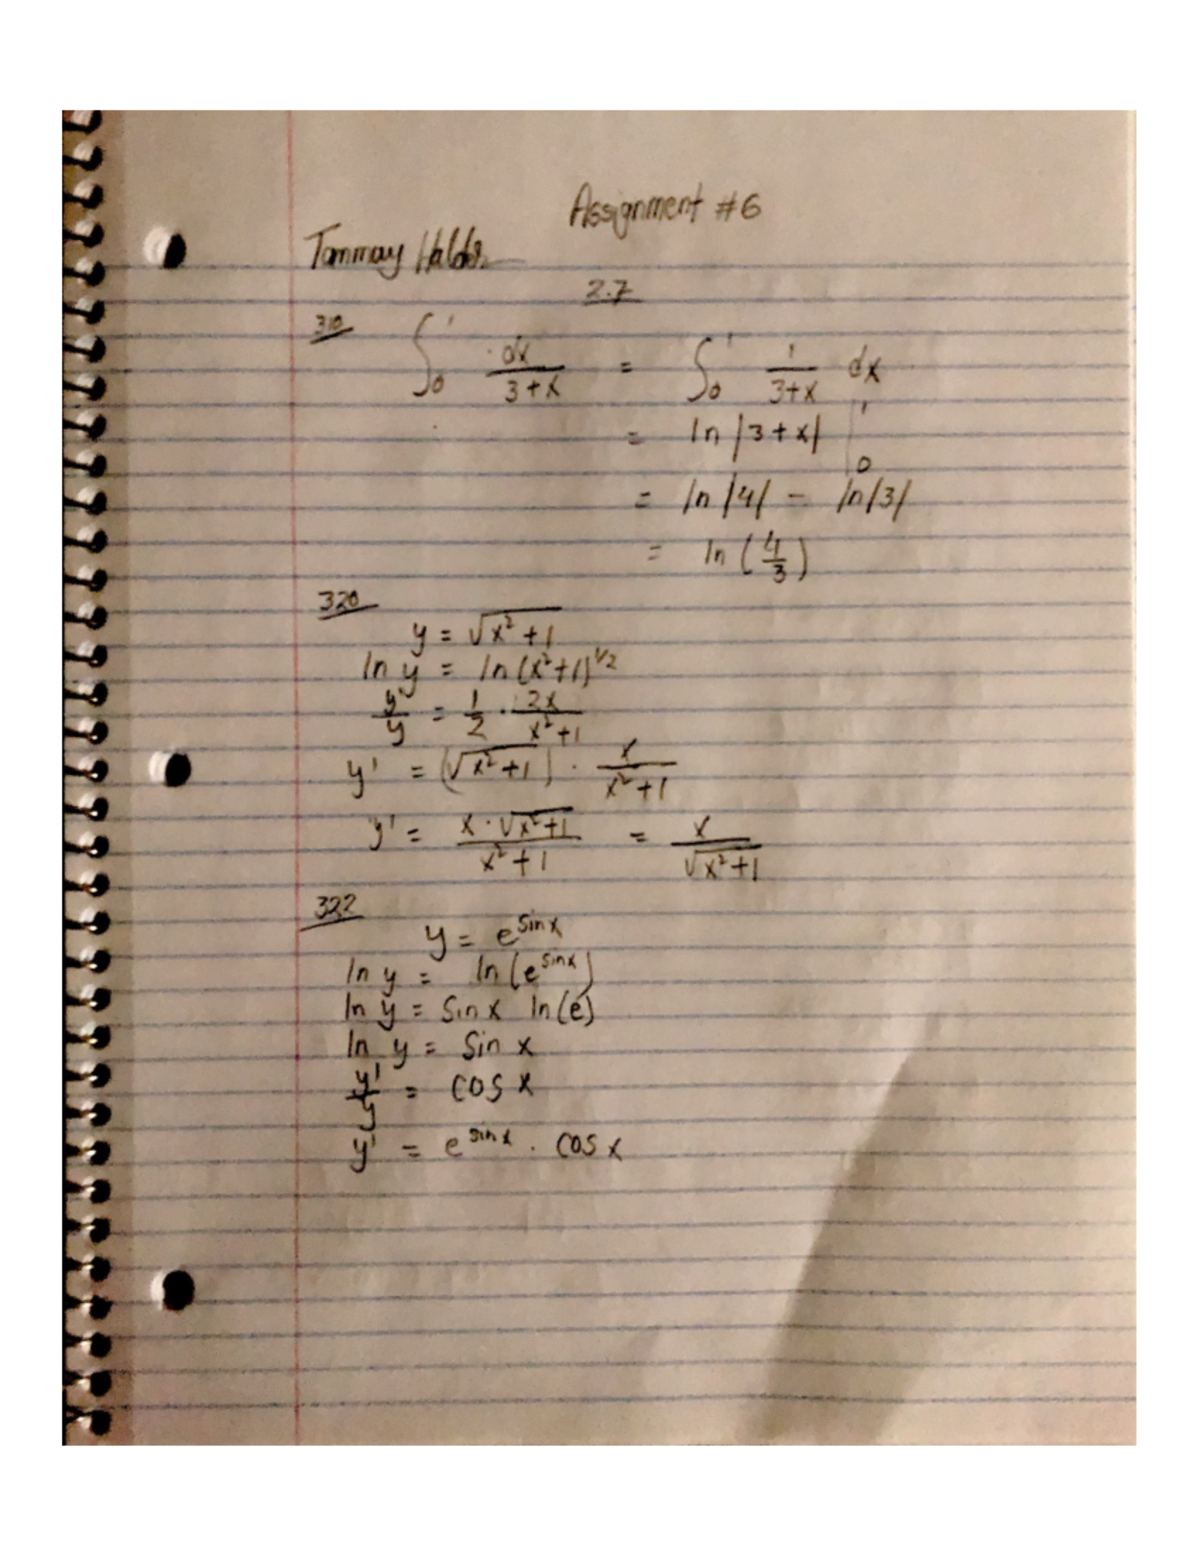 Assignment #6
Tanmay Halder
2.7
310 ∫₀¹ dx/(3+x) = ∫₀¹ 1/(3+x) dx
= ln|3+x| |₀¹
= ln|4| - ln|3|
= ln(4/3)
320
y = √(x²+1)
ln y = ln(x²+1)^(1/2)
y'/y = 1/2 · 2x/(x²+1)
y' = (√(x²+1)) · x/(x²+1)
y' = x·√(x²+1)/(x²+1) = x/√(x²+1)
322
y = e^(sin x)
ln y = ln(e^(sin x))
ln y = Sin x ln(e)
ln y = Sin x
y'/y = cos x
y' = e^(sin x) · cos x